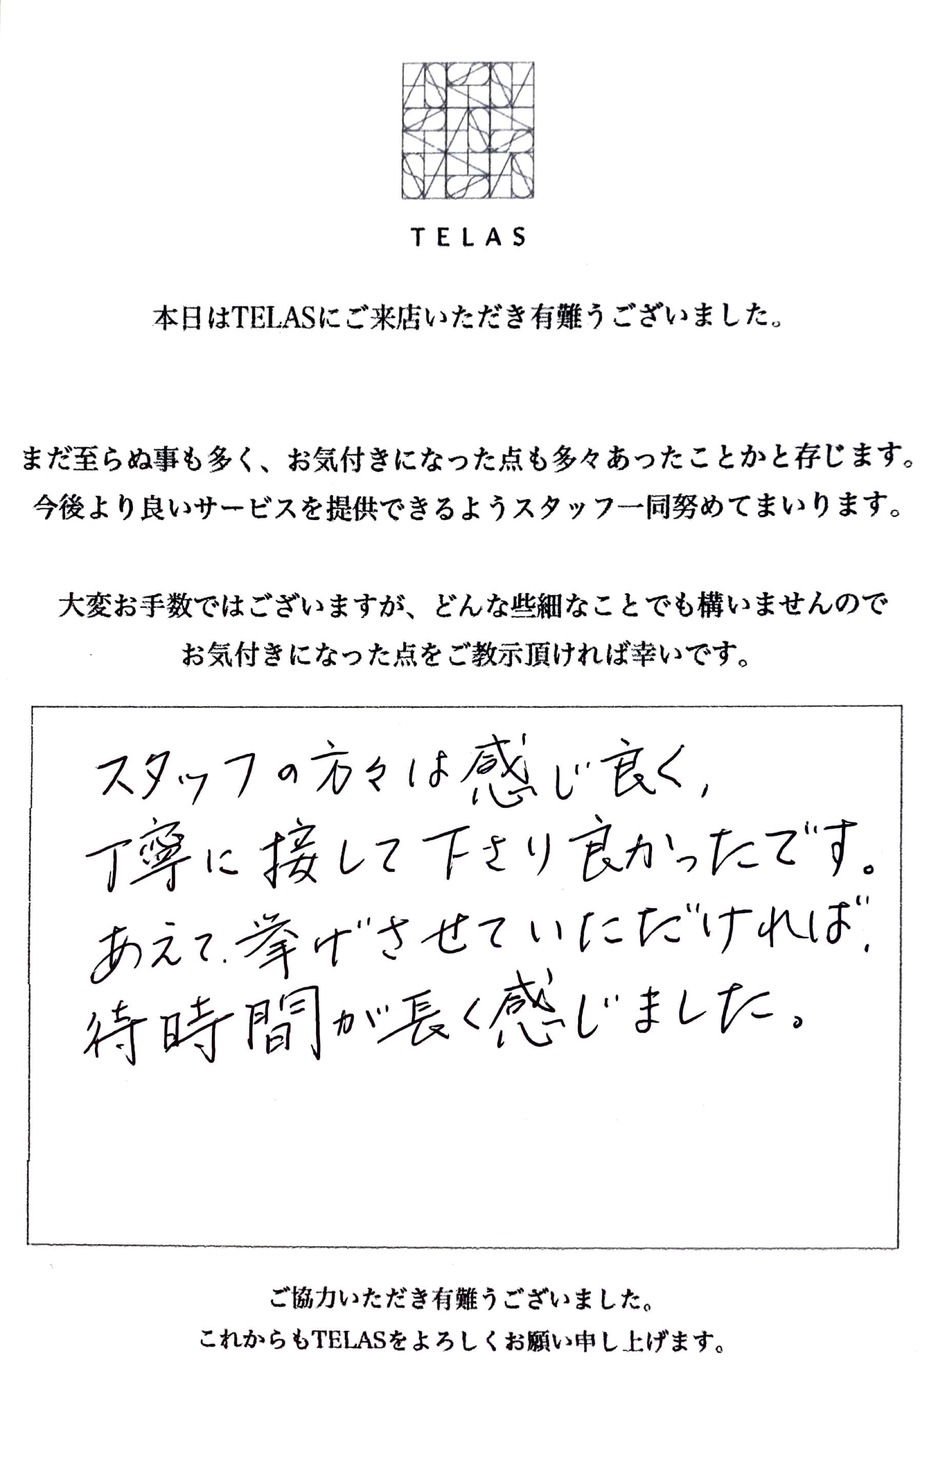 TELAS
本日はTELASにご来店いただき有難うございました。
まだ至らぬ事も多く、お気付きになった点も多々あったことかと存じます。
今後より良いサービスを提供できるようスタッフ一同努めてまいります。
大変お手数ではございますが、どんな些細なことでも構いませんので
お気付きになった点をご教示頂ければ幸いです。
スタッフの方々は感じ良く,
丁寧に接して下さり良かったです。
あえて、挙げさせていただければ、
待時間が長く感じました。
ご協力いただき有難うございました。
これからもTELASをよろしくお願い申し上げます。